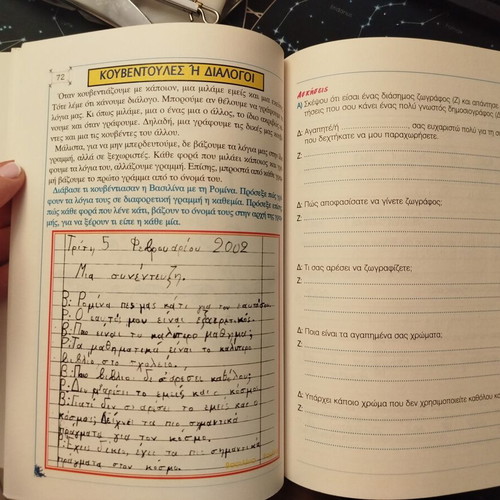 72
ΚΟΥΒΕΝΤΟΥΛΕΣ Ή ΔΙΑΛΟΓΟΙ
Όταν κουβεντιάζουμε με κάποιον, μια μιλάμε εμείς και μια
Τότε λέμε ότι κάνουμε διάλογο. Μπορούμε αν θέλουμε να γράψου
λόγια μας. Κι όπως μιλάμε, μια ο ένας μια ο άλλος, το ίδιο ακριβώς
νουμε και όταν γράφουμε. Δηλαδή, μια γράφουμε τις δικές μας
ντες και μια τις κουβέντες του άλλου.
Μάλιστα, για να μην μπερδευτούμε, δε βάζουμε τα λόγια μας στην
γραμμή, αλλά σε ξεχωριστές. Κάθε φορά που μιλάει κάποιος και
φουμε τα λόγια του, αλλάζουμε γραμμή. Επίσης, μπροστά από κάθε
μή βάζουμε το πρώτο γράμμα από το όνομά του.
Διάβασε τι κουβέντιασαν η Βασιλίνα με τη Ρομίνα. Πρόσεξε πώς
φουν τα λόγια τους σε διαφορετική γραμμή η καθεμία. Πρόσεξε επίσης
πώς κάθε φορά που λένε κάτι, βάζουν το όνομά τους στην αρχή της
μής, για να ξέρουν τι είπε η κάθε μία.
Τρίτη 5 Φεβρουαρίου 2002
Μια συνέντευξη.
Β: Ρομίνα πες μας κάτι για τον εαυτό σου.
Ρ: Ο εαυτός μου είναι εξαιρετικός.
Β: Ποιο είναι το καλύτερο μάθημα;
Ρ: Τα μαθηματικά είναι το καλύτερο
βιβλίο στο σχολείο.
Β: Ποιο βιβλίο δε σ' αρέσει καθόλου;
Ρ: Δε μ' αρέσει το εμείς και ο κόσμος.
Β: Γιατί δεν σ' αρέσει το εμείς και ο
κόσμος; Δείχνει τα πιο σημαντικά
πράγματα για τον κόσμο.
Έχεις δίκιο, έχει τα πιο σημαντικά
πράγματα στον κόσμο.
Ασκήσεις
Α) Σκέψου ότι είσαι ένας διάσημος ζωγράφος (Ζ) και απάντησε
τήσεις που σου κάνει ένας πολύ γνωστός δημοσιογράφος
Δ: Αγαπητέ/ή , σας ευχαριστώ πολύ για τη
που δεχτήκατε να μου παραχωρήσετε.
Ζ:
Δ: Πώς αποφασίσατε να γίνετε ζωγράφος;
Ζ:
Δ: Τι σας αρέσει να ζωγραφίζετε;
Ζ:
Δ: Ποια είναι τα αγαπημένα σας χρώματα;
Ζ:
Δ: Υπάρχει κάποιο χρώμα που δεν χρησιμοποιείτε καθόλου
Ζ: